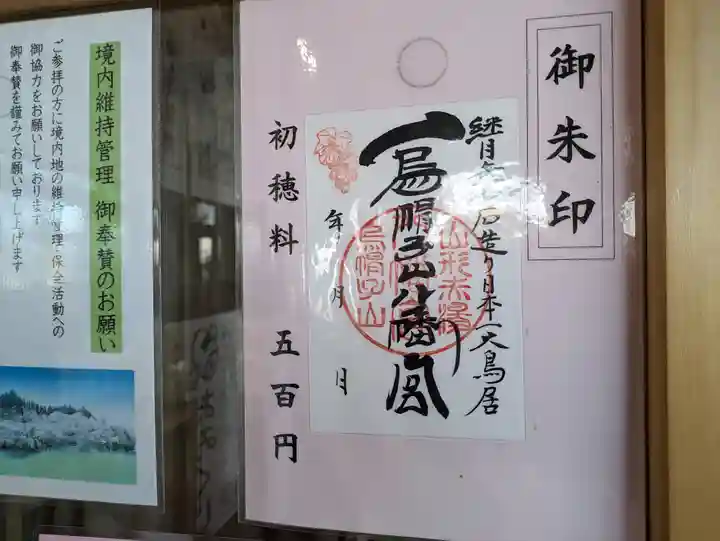 御朱印
継ぎ目なし石造り日本一大鳥居
烏帽子山八幡宮
年
月
日
初穂料 五百円
境内維持管理 御奉賛のお願い
ご参拝の方に境内地の維持管理・保全活動への
御協力をお願いしております
御奉賛を謹みてお願い申し上げます